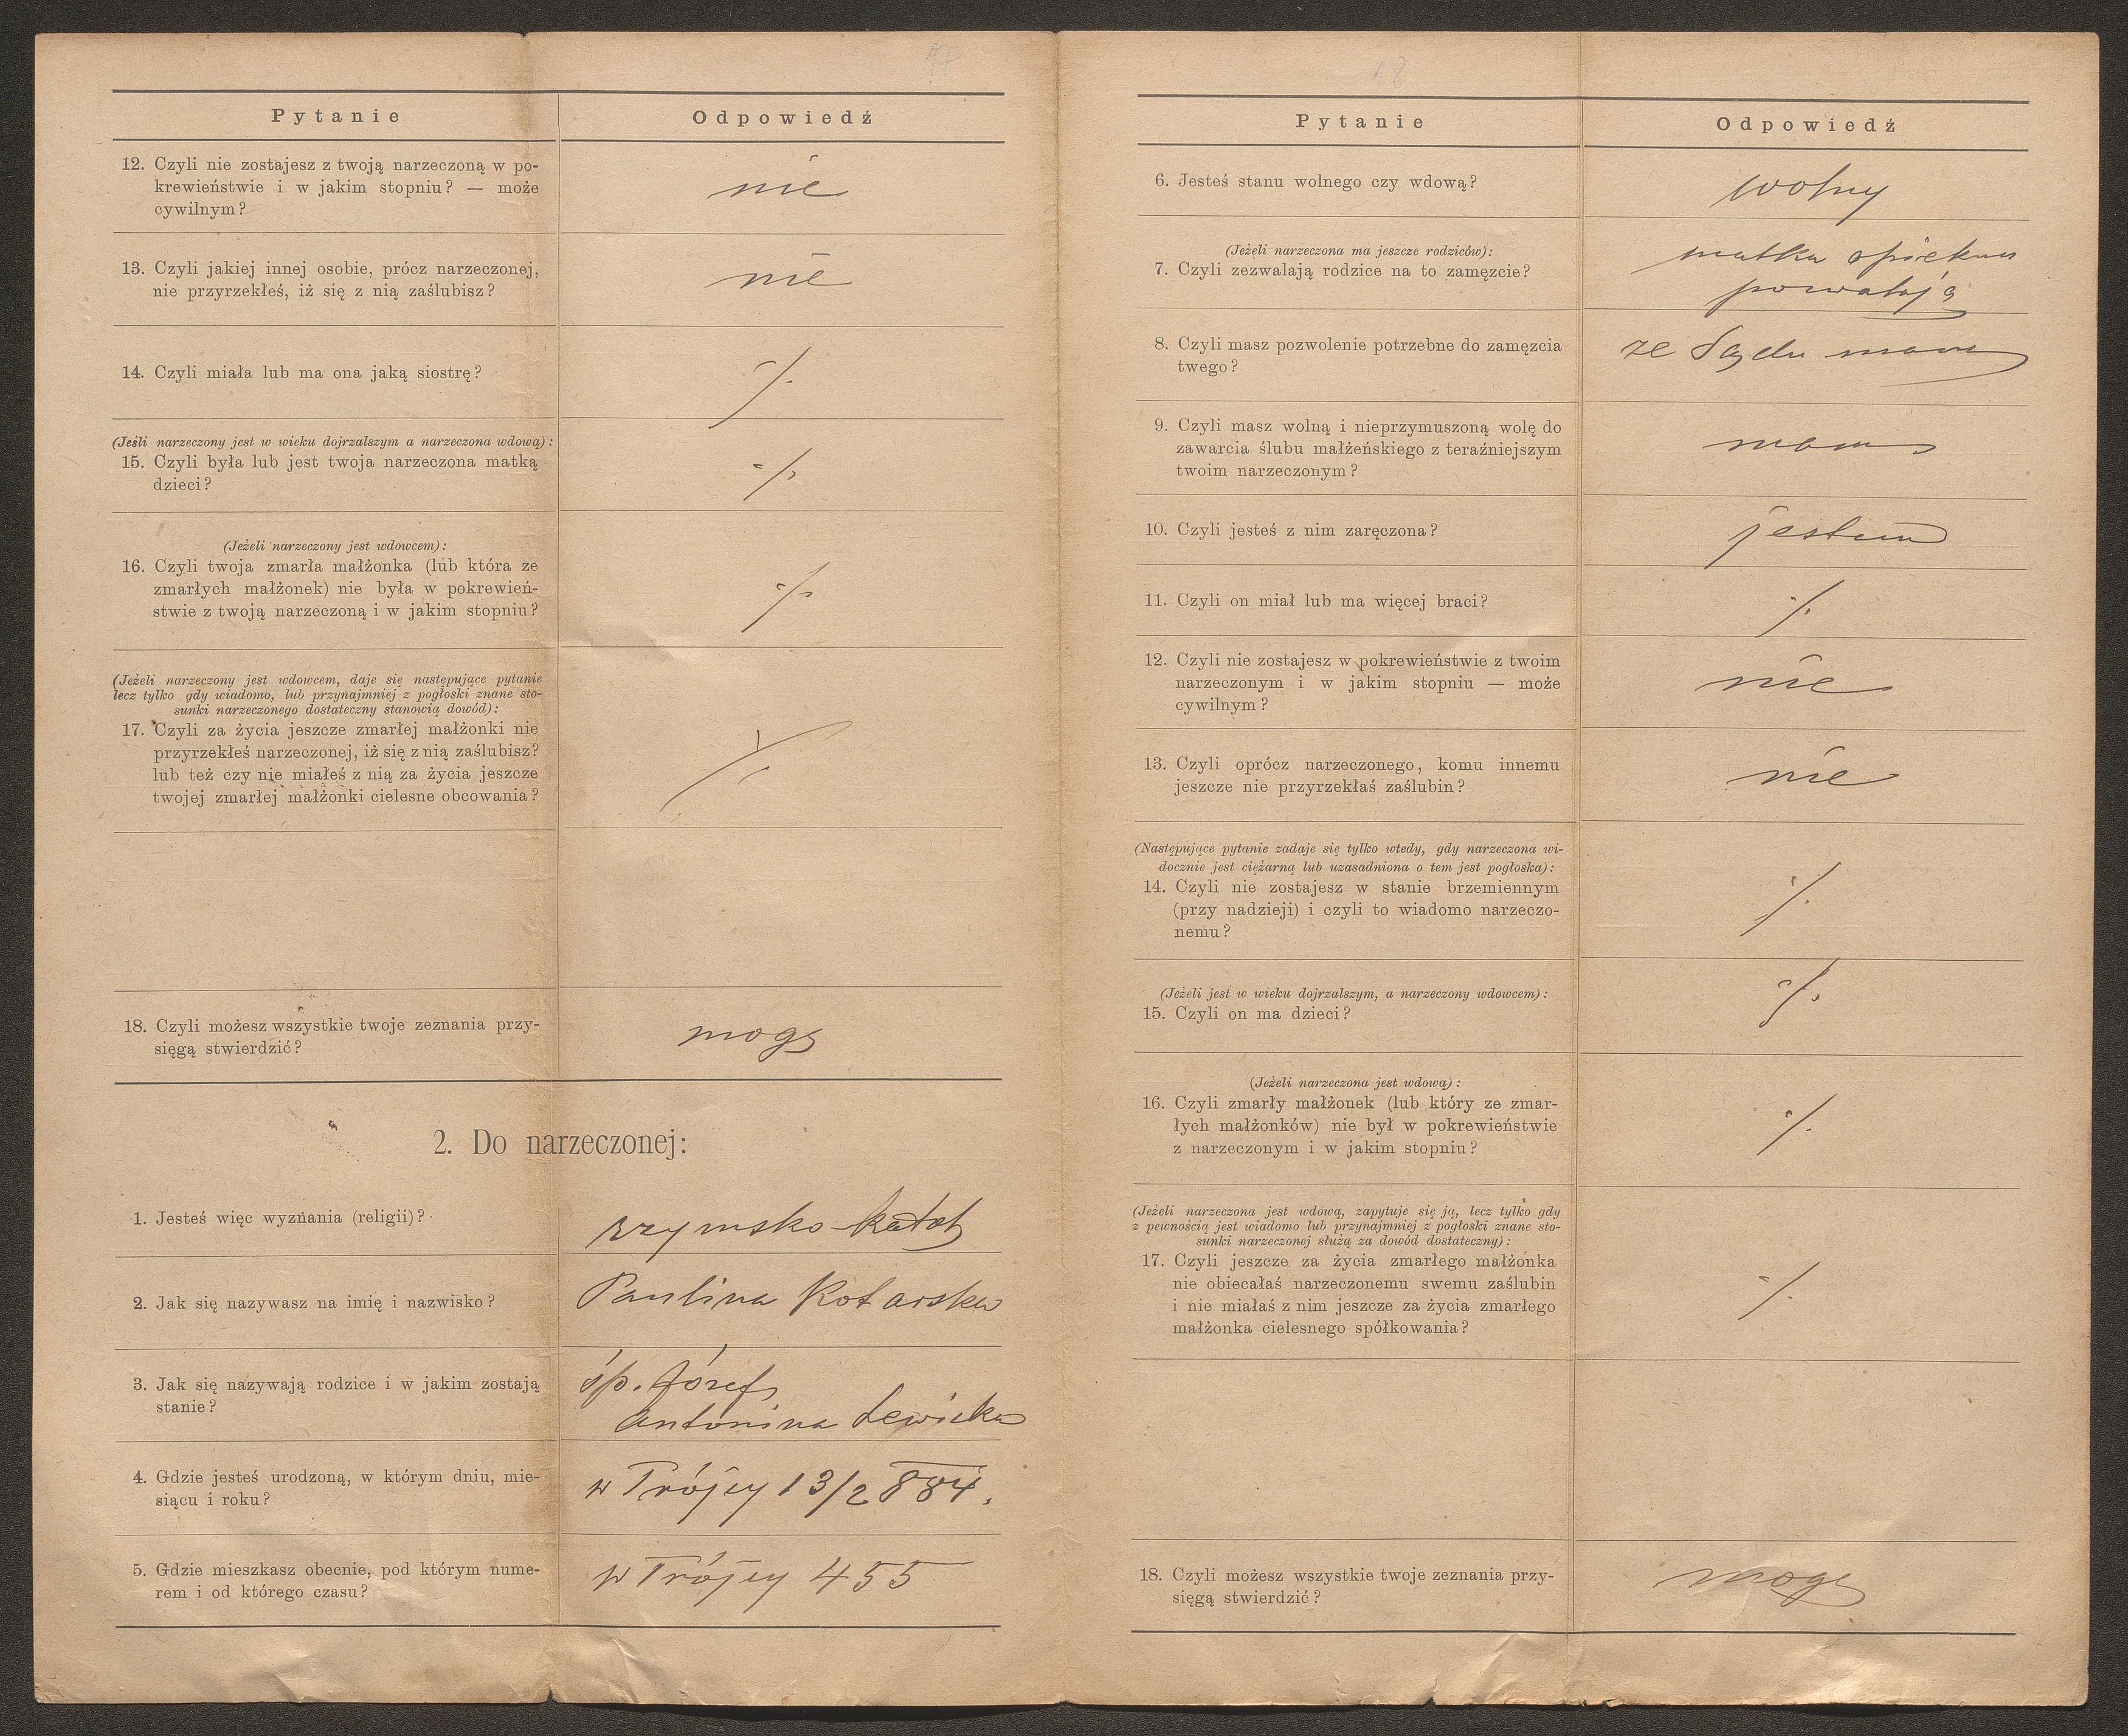 17
Pytanie
Odpowiedź
12. Czyli nie zostajesz z twoją narzeczoną w po-
krewieństwie i w jakim stopniu? — może
cywilnym?
nie
13. Czyli jakiej innej osobie, prócz narzeczonej,
nie przyrzekłeś, iż się z nią zaślubisz?
nie
14. Czyli miała lub ma ona jaką siostrę?
./.
(Jeśli narzeczony jest w wieku dojrzalszym a narzeczona wdową):
15. Czyli była lub jest twoja narzeczona matką
dzieci?
./.
(Jeżeli narzeczony jest wdowcem):
16. Czyli twoja zmarła małżonka (lub która ze
zmarłych małżonek) nie była w pokrewień-
stwie z twoją narzeczoną i w jakim stopniu?
./.
(Jeżeli narzeczony jest wdowcem, daje się następujące pytanie
lecz tylko gdy wiadomo, lub przynajmniej z pogłoski znane sto-
sunki narzeczonego dostateczny stanowią dowód):
17. Czyli za życia jeszcze zmarłej małżonki nie
przyrzekłeś narzeczonej, iż się z nią zaślubisz?
lub też czy nie miałeś z nią za życia jeszcze
twojej zmarłej małżonki cielesne obcowania?
./.
18. Czyli możesz wszystkie twoje zeznania przy-
sięgą stwierdzić?
mogę
2. Do narzeczonej:
1. Jesteś więc wyznania (religii)?
rzymsko-katol
2. Jak się nazywasz na imię i nazwisko?
Paulina Kotarska
3. Jak się nazywają rodzice i w jakim zostają
stanie?
śp. Józef
Antonina Lewicka
4. Gdzie jesteś urodzoną, w którym dniu, mie-
siącu i roku?
w Trójcy 13/2 884.
5. Gdzie mieszkasz obecnie, pod którym nume-
rem i od którego czasu?
w Trójcy 455
18
Pytanie
Odpowiedź
6. Jesteś stanu wolnego czy wdową?
wolny
(Jeżeli narzeczona ma jeszcze rodziców):
7. Czyli zezwalają rodzice na to zamęzcie?
matka opiekun
pozwalają
8. Czyli masz pozwolenie potrzebne do zamęzcia
twego?
ze Sądu mam
9. Czyli masz wolną i nieprzymuszoną wolę do
zawarcia ślubu małżeńskiego z teraźniejszym
twoim narzeczonym?
mam
10. Czyli jesteś z nim zaręczona?
jestem
11. Czyli on miał lub ma więcej braci?
./.
12. Czyli nie zostajesz w pokrewieństwie z twoim
narzeczonym i w jakim stopniu — może
cywilnym?
nie
13. Czyli oprócz narzeczonego, komu innemu
jeszcze nie przyrzekłaś zaślubin?
nie
(Następujące pytanie zadaje się tylko wtedy, gdy narzeczona wi-
docznie jest ciężarną lub uzasadniona o tem jest pogłoska):
14. Czyli nie zostajesz w stanie brzemiennym
(przy nadzieji) i czyli to wiadomo narzeczo-
nemu?
./.
(Jeżeli jest w wieku dojrzalszym, a narzeczony wdowcem):
15. Czyli on ma dzieci?
./.
(Jeżeli narzeczona jest wdową):
16. Czyli zmarły małżonek (lub który ze zmar-
łych małżonków) nie był w pokrewieństwie
z narzeczonym i w jakim stopniu?
./.
(Jeżeli narzeczona jest wdową, zapytuje się ją, lecz tylko gdy
z pewnością jest wiadomo lub przynajmniej z pogłoski znane sto-
sunki narzeczonej służą za dowód dostateczny):
17. Czyli jeszcze za życia zmarłego małżonka
nie obiecałaś narzeczonemu swemu zaślubin
i nie miałaś z nim jeszcze za życia zmarłego
małżonka cielesnego spółkowania?
./.
18. Czyli możesz wszystkie twoje zeznania przy-
sięgą stwierdzić?
mogę